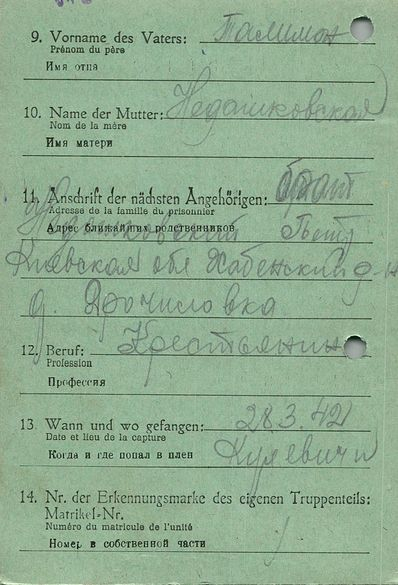 9. Vorname des Vaters: Талимон
Prénom du père
Имя отца
10. Name der Mutter: Недашковская
Nom de la mère
Имя матери
11. Anschrift der nächsten Angehörigen: брат
Adresse de la famille du prisonnier
Недашковский Петр
Адрес ближайших родственников
Киевская обл Хабенский р-н
д.
12. Beruf: Крестьянин
Profession
Профессия
13. Wann und wo gefangen: 28.3.42
Date et lieu de la capture
Когда и где попал в плен
14. Nr. der Erkennungsmarke des eigenen Truppenteils:
Matrikel-Nr.
Numéro du matricule de l'unité
Номер в собственной части